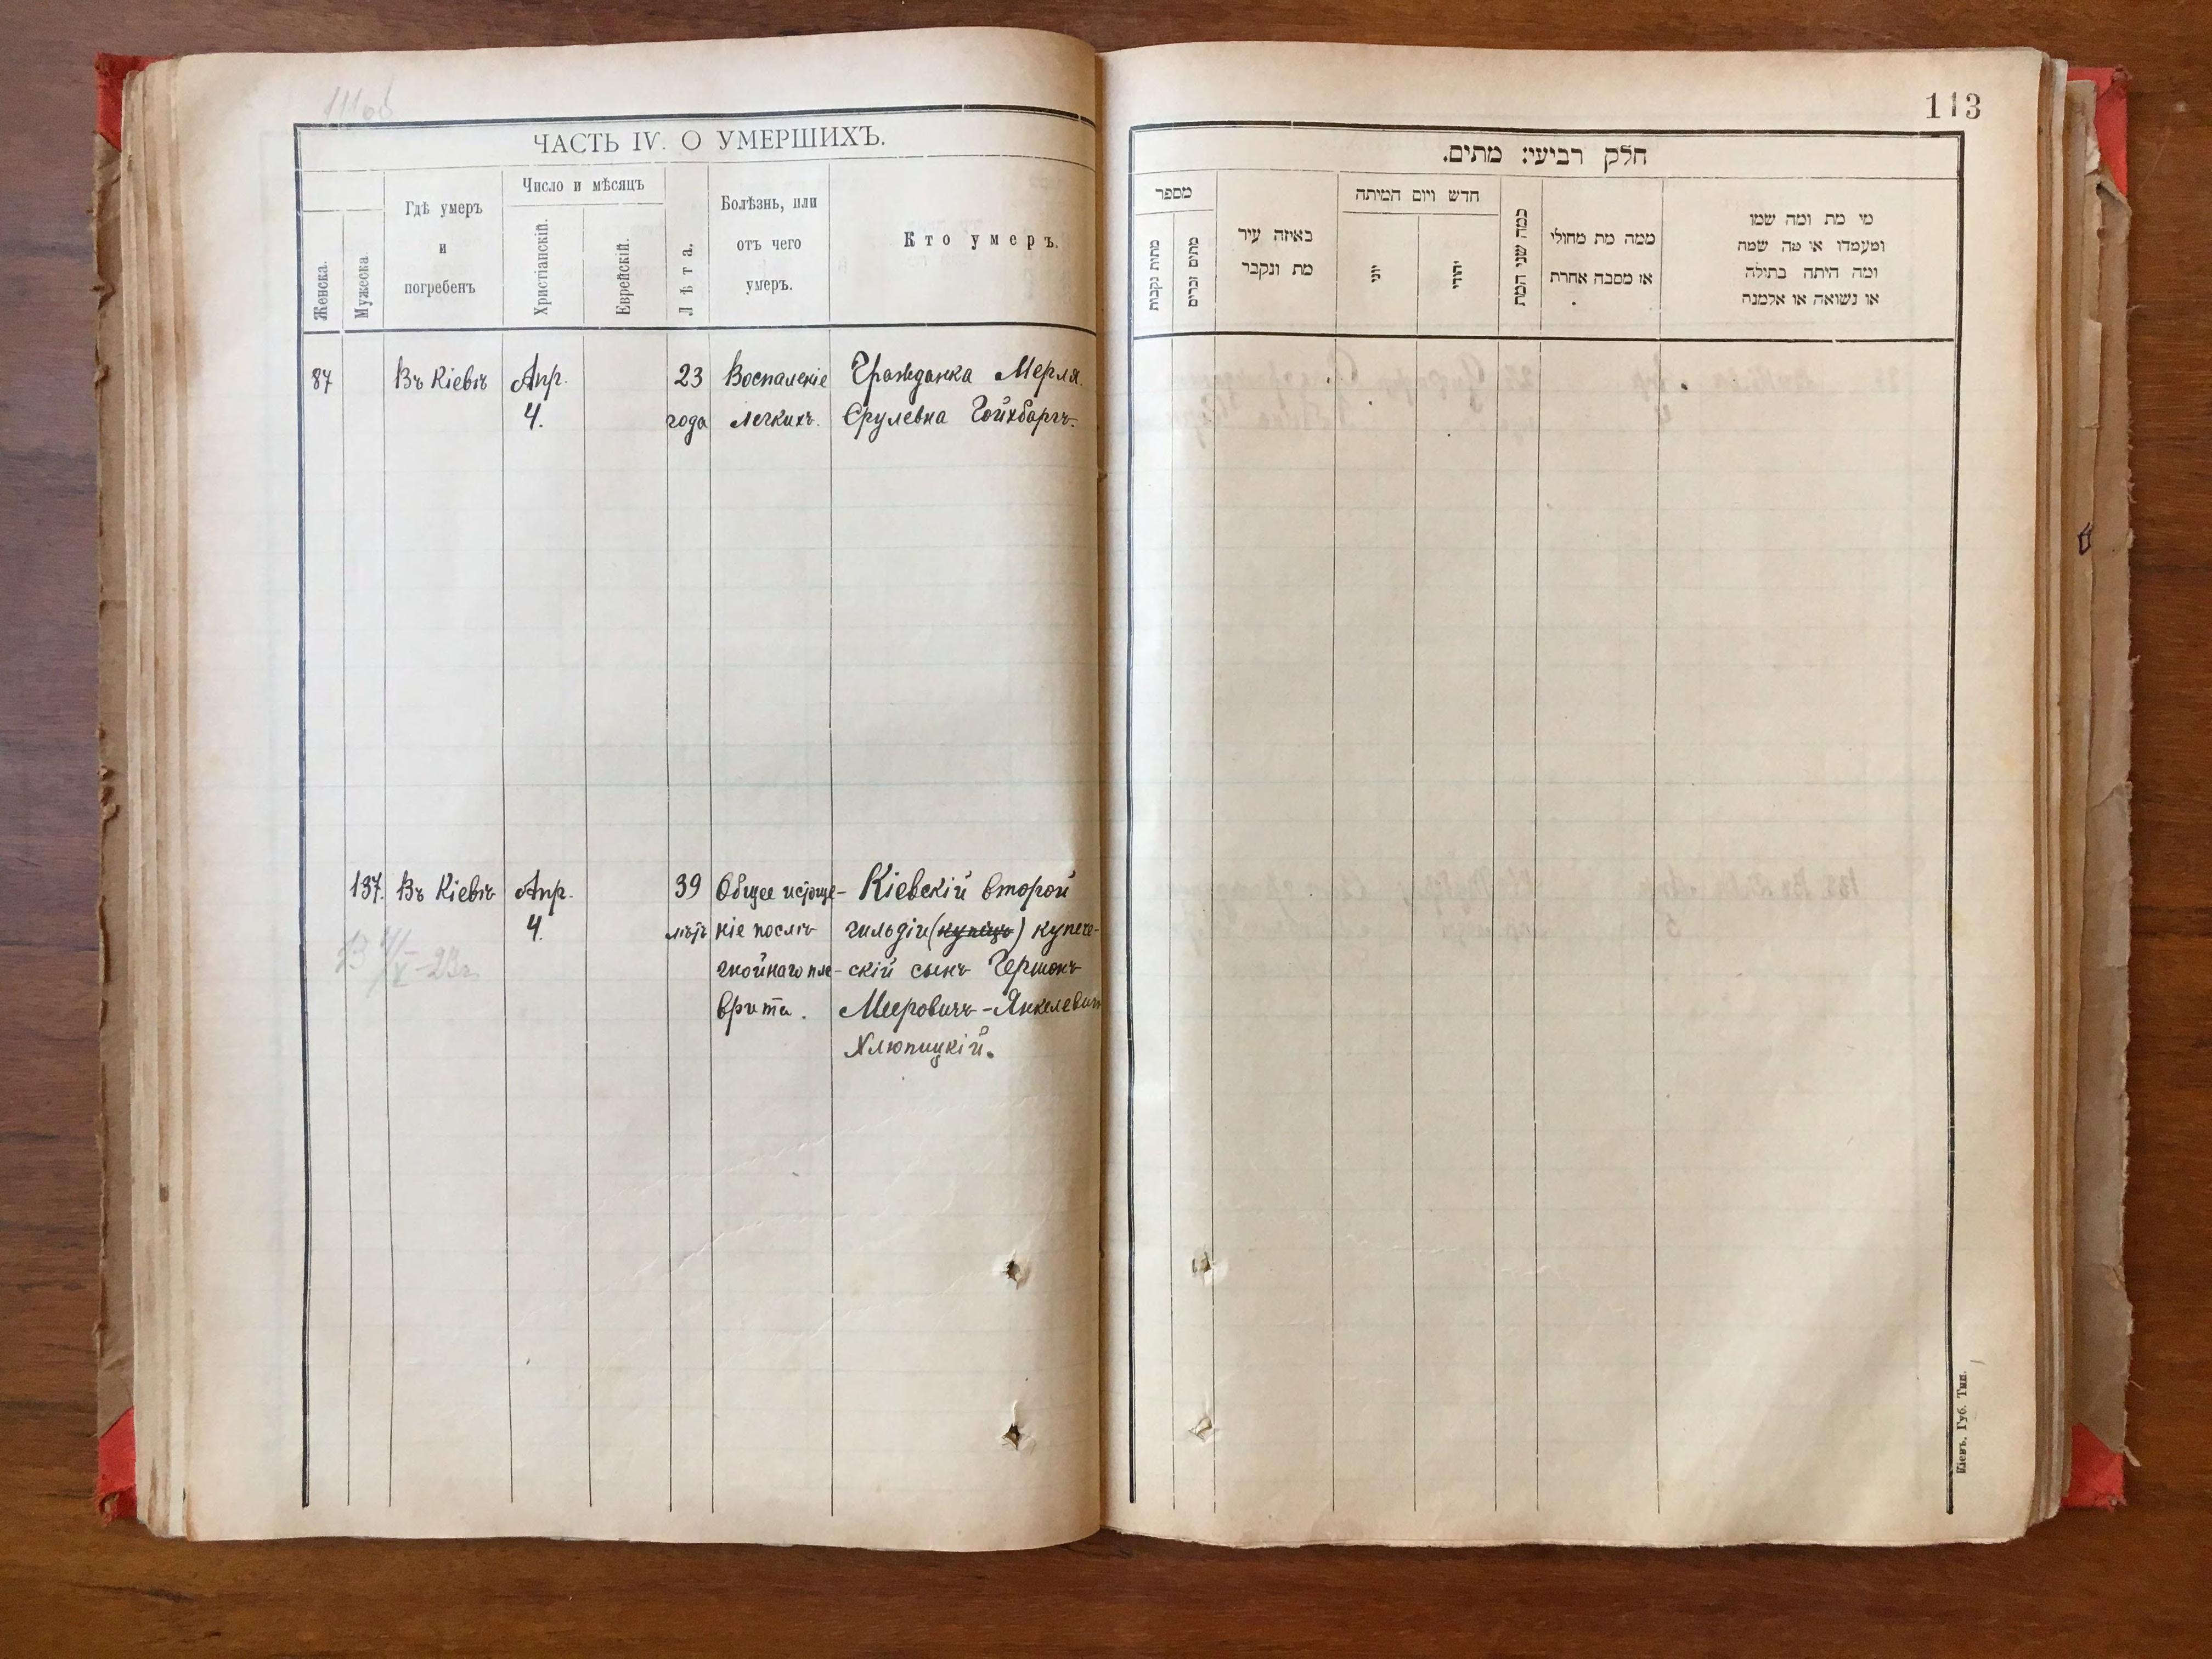 ЧАСТЬ IV. О УМЕРШИХЪ.
Женска.
Мужеска.
Гдѣ умеръ
и
погребенъ
Число и мѣсяцъ
Христіанскій.
Еврейскій.
Лѣта.
Болѣзнь, или
отъ чего
умеръ.
Кто умеръ.
87 Въ Кіевѣ Апр. 23 Воспаленіе Гражданка Мерля
4. года легкихъ. Срулевна Гойхбаргъ.
137. Въ Кіевѣ Апр. 39 Общее истоще- Кіевскій второй
4. лѣтъ ніе послѣ гильдіи (купецъ) купече-
гнойнаго пле- скій сынъ Гершонъ
врита. Мееровичъ-Янкелевичъ
Хлюпицкій.
113
חלק רביעי: מתים.
מספר
מתות נקבות
מתים זכרים
באיזה עיר
מת ונקבר
חדש ויום המיתה
יוני
יהודי
כמה שני המת
ממה מת מחולי
או מסבה אחרת
מי מת ומה שמו
ומעמדו או מה שמה
ומה היתה בתולה
או נשואה או אלמנה
Кіевъ. Губ. Тип.